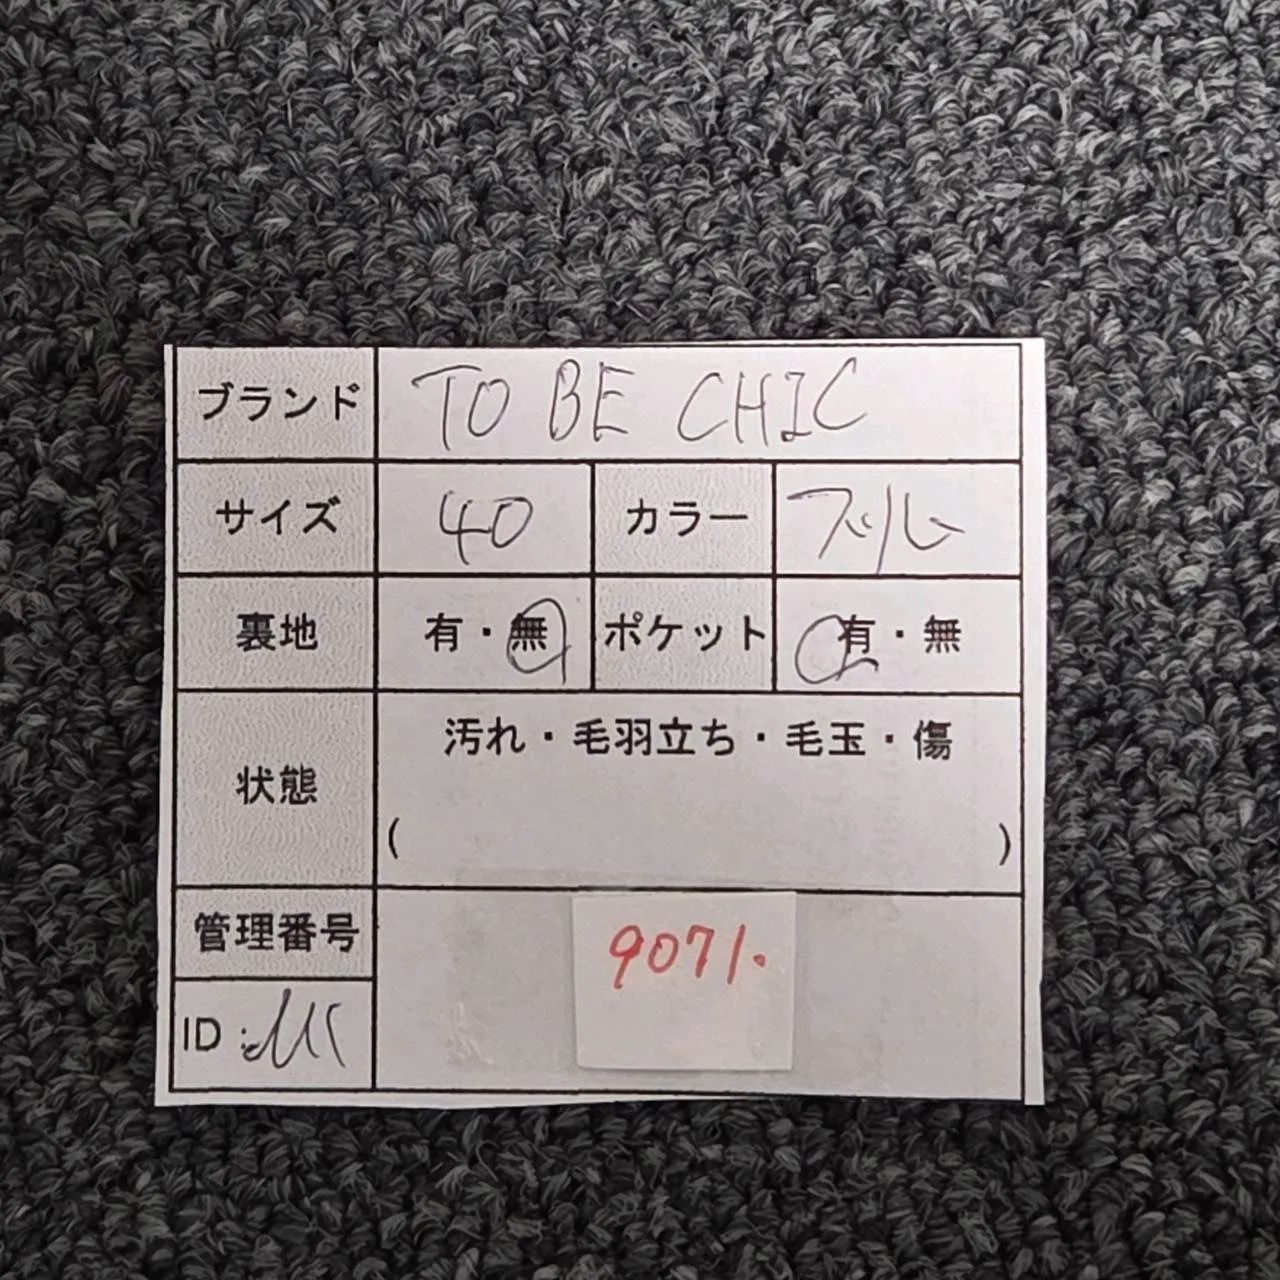 ブランド TO BE CHIC
サイズ 40 カラー
裏地 有・無 ポケット 有・無
状態 汚れ・毛羽立ち・毛玉・傷
( )
管理番号 9071.
ID: